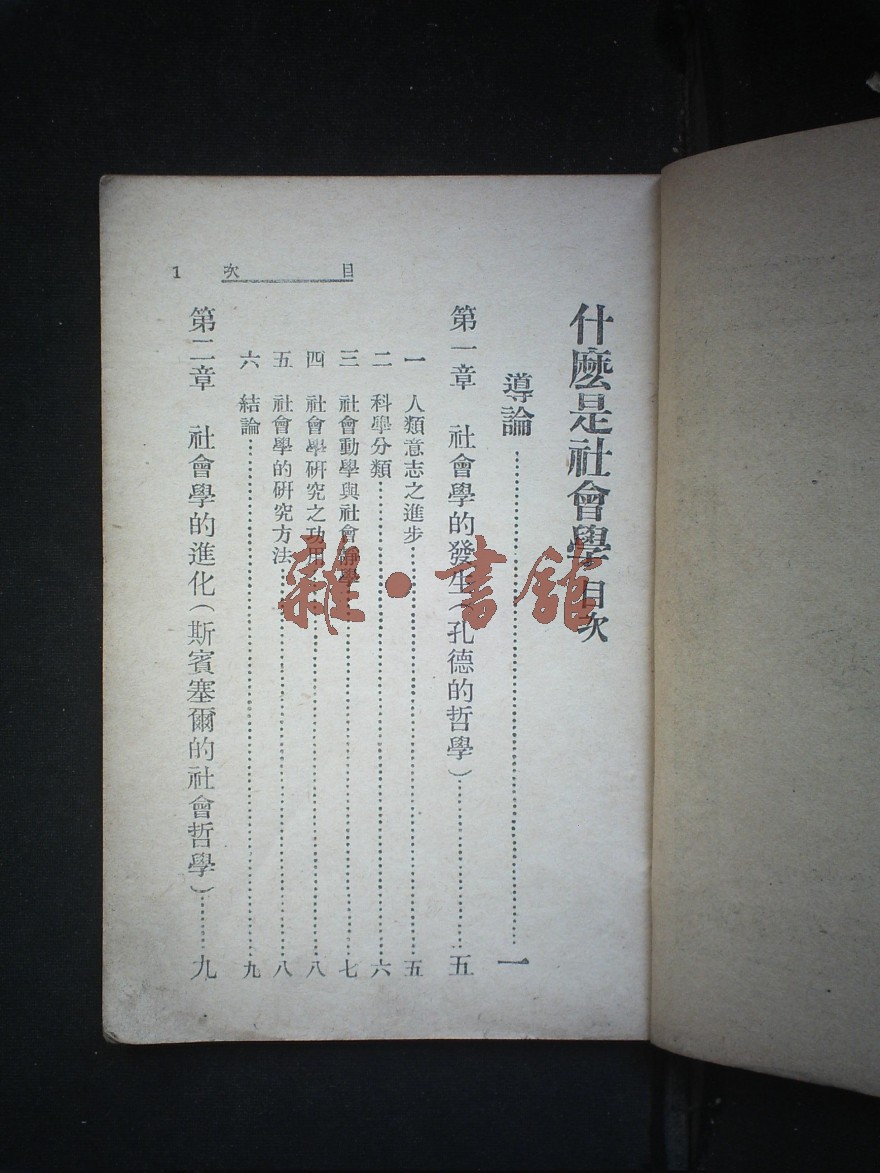 目次 1
什麼是社會學 目次
導論……一
第一章 社會學的發生（孔德的哲學）……五
一 人類意志之進步……五
二 科學分類……六
三 社會動學與社會靜學……七
四 社會學研究之功用……八
五 社會學的研究方法……八
六 結論……九
第二章 社會學的進化（斯賓塞爾的社會哲學）……九
雜·書館